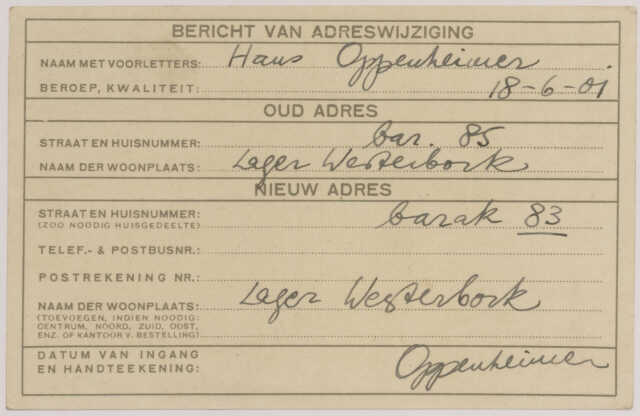 BERICHT VAN ADRESWIJZIGING
NAAM MET VOORLETTERS: Hans Oppenheimer
BEROEP, KWALITEIT: 18-6-01
OUD ADRES
STRAAT EN HUISNUMMER: bar. 85
NAAM DER WOONPLAATS: Lager Westerbork
NIEUW ADRES
STRAAT EN HUISNUMMER: barak 83
(ZOO NOODIG HUISGEDEELTE)
TELEF.- & POSTBUSNR.:
POSTREKENING NR.:
NAAM DER WOONPLAATS: Lager Westerbork
(TOEVOEGEN, INDIEN NOODIG:
CENTRUM, NOORD, ZUID, OOST,
ENZ. OF KANTOOR V. BESTELLING)
DATUM VAN INGANG
EN HANDTEEKENING: Oppenheimer